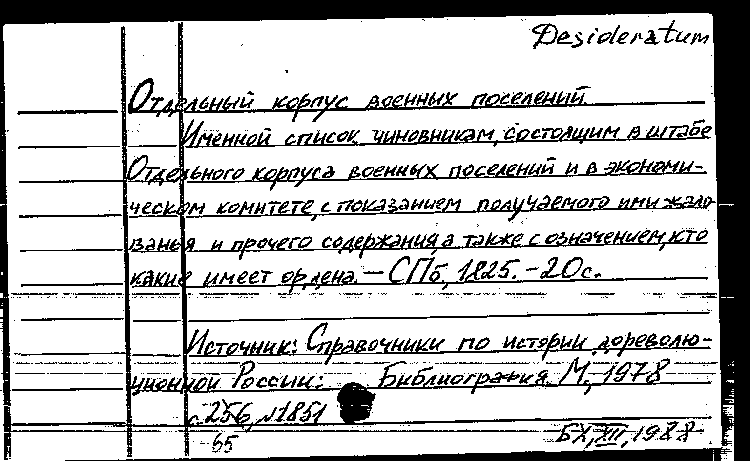 Desideratum
Отдельный корпус военных поселений
Именной список чиновникам, состоящим в штабе
Отдельного корпуса военных поселений и в экономи-
ческом комитете, с показанием получаемого ими жало-
ванья и прочего содержания, а также с означением, кто
какие имеет ордена. — СПб, 1825. - 20 с.
Источник: Справочники по истории дореволю-
ционной России: Библиография М., 1978
с. 256, №1851
65
БХ, XII, 1988